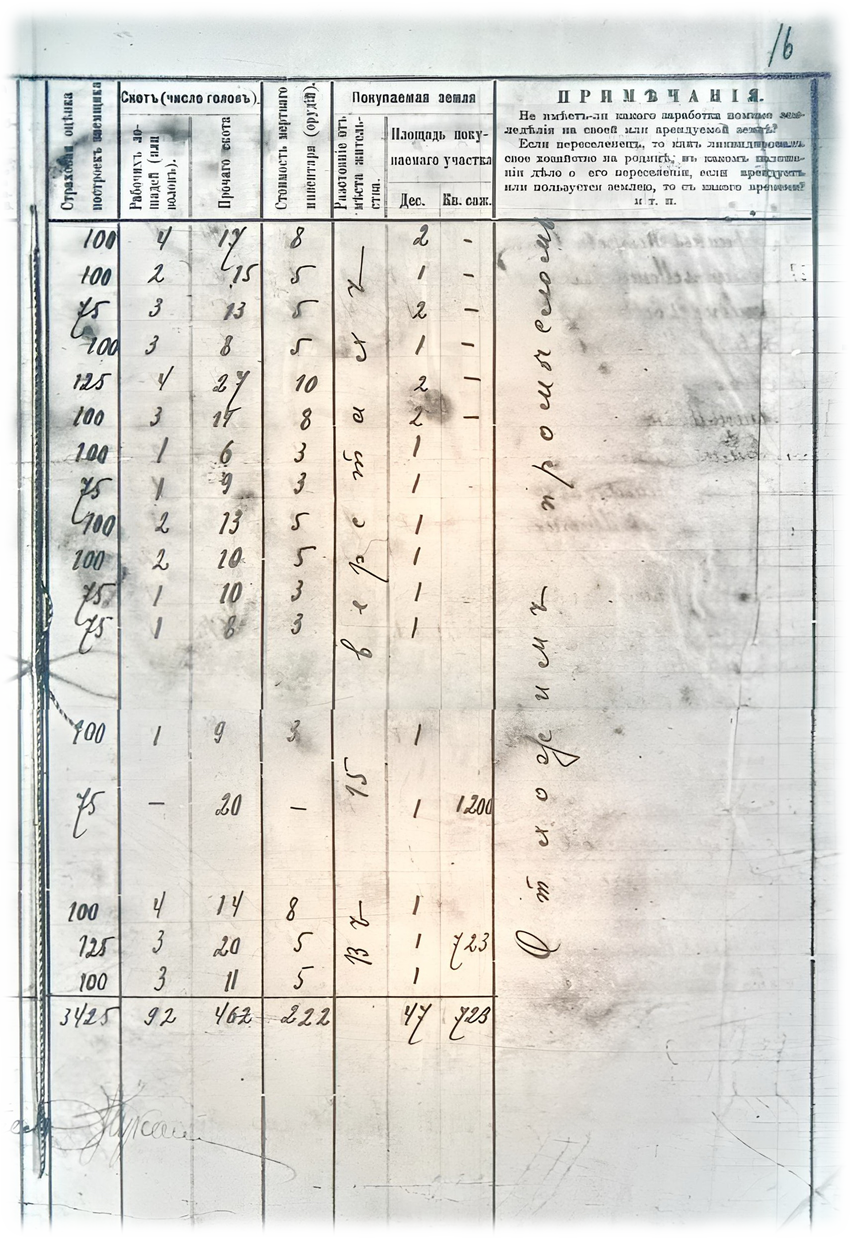 16
Страховая оцѣнка построекъ заемщика
Скотъ (число головъ).
Рабочихъ лошадей (или воловъ).
Прочаго скота
Стоимость мертваго инвентаря (орудій).
Покупаемая земля
Разстояніе отъ мѣста жительства.
Площадь покупаемаго участка
Дес. Кв. саж.
ПРИМѢЧАНІЯ.
Не имѣетъ-ли какого заработка помимо земледѣлія на своей или арендуемой землѣ?
Если переселенецъ, то какъ ликвидировалъ
свое хозяйство на родинѣ, въ какомъ положеніи дѣло о его переселеніи, если арендуетъ
или пользуется землею, то съ какого времени?
и т. п.
100 4 17 8 2 -
100 2 15 5 1 -
75 3 13 5 2 -
100 3 8 5 1 -
125 4 27 10 2 -
100 3 8 2 -
100 1 6 3 1
75 1 9 3 1
100 2 13 5 1
100 2 10 5 1
75 1 10 3 1
75 1 8 3 1
100 1 9 3 1
75 - 20 - 1 1200
100 4 14 8 1
125 3 20 5 1 723
100 3 11 5 1
3425 92 462 222 47 723
Въ 15 верстахъ
Отхожимъ промысломъ